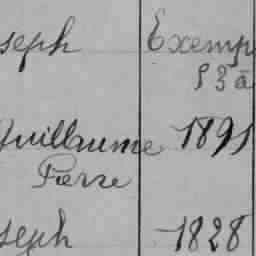 seph Exemp
53 a
Guillaume 1891
Pierre
seph 1828